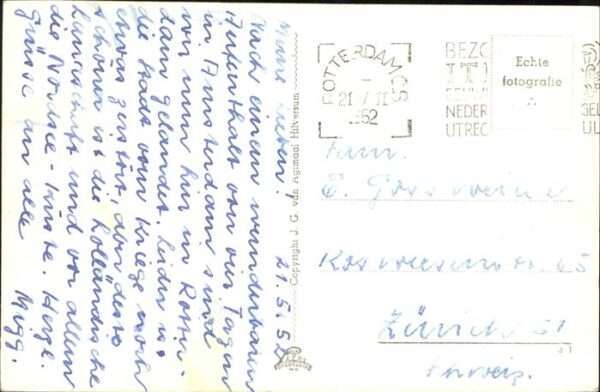 Meine Lieben! 21.5.52
Nach einem wunderbaren
Aufenthalt von vier Tagen
in Amsterdam sind
wir nun hier in Rotter-
dam gelandet. Leider ist
die Stadt vom Kriege noch
etwas zerstört, aber desto
schöner ist die holländische
Landschaft und vor allem
die Nordsee-Küste. Herzl.
Grüsse an alle Migg.
Copyright J. G. van Agtmaal Hilversum
ROTTERDAM CS
21 V 11
1952
BEZO
NEDER
UTREC
GEL
UL
Echte
fotografie
Fam.
E.
65
Zürich 51
Schweiz.